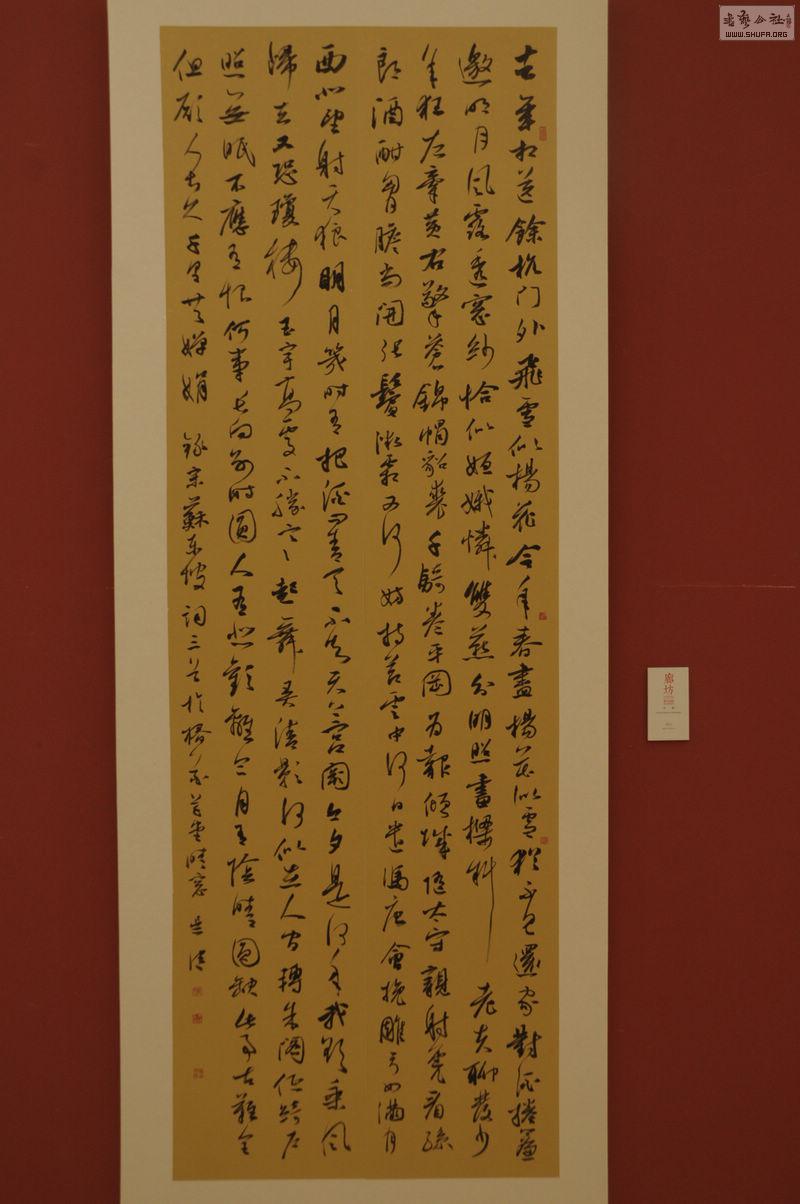 去年相送餘杭門外飛雪似楊花今年春盡楊花似雪猶不見還家對酒捲簾
邀明月風露透窗紗恰似姮娥憐雙燕分明照畫樑斜 老夫聊發少
年狂左牽黃右擎蒼錦帽貂裘千騎卷平岡為報傾城隨太守親射虎看孫
郎酒酣胸膽尚開張鬢微霜又何妨持節雲中何日遣馮唐會挽雕弓如滿月
西北望射天狼明月幾時有把酒問青天不知天上宮闕今夕是何年我欲乘風
歸去又恐瓊樓玉宇高處不勝寒起舞弄清影何似在人間轉朱閣低綺戶
照無眠不應有恨何事長向別時圓人有悲歡離合月有陰晴圓缺此事古難全
但願人長久千里共嬋娟 錄宋蘇東坡詞三首於晴窗
廊坊
書藝公社
WWW.SHUFA.ORG